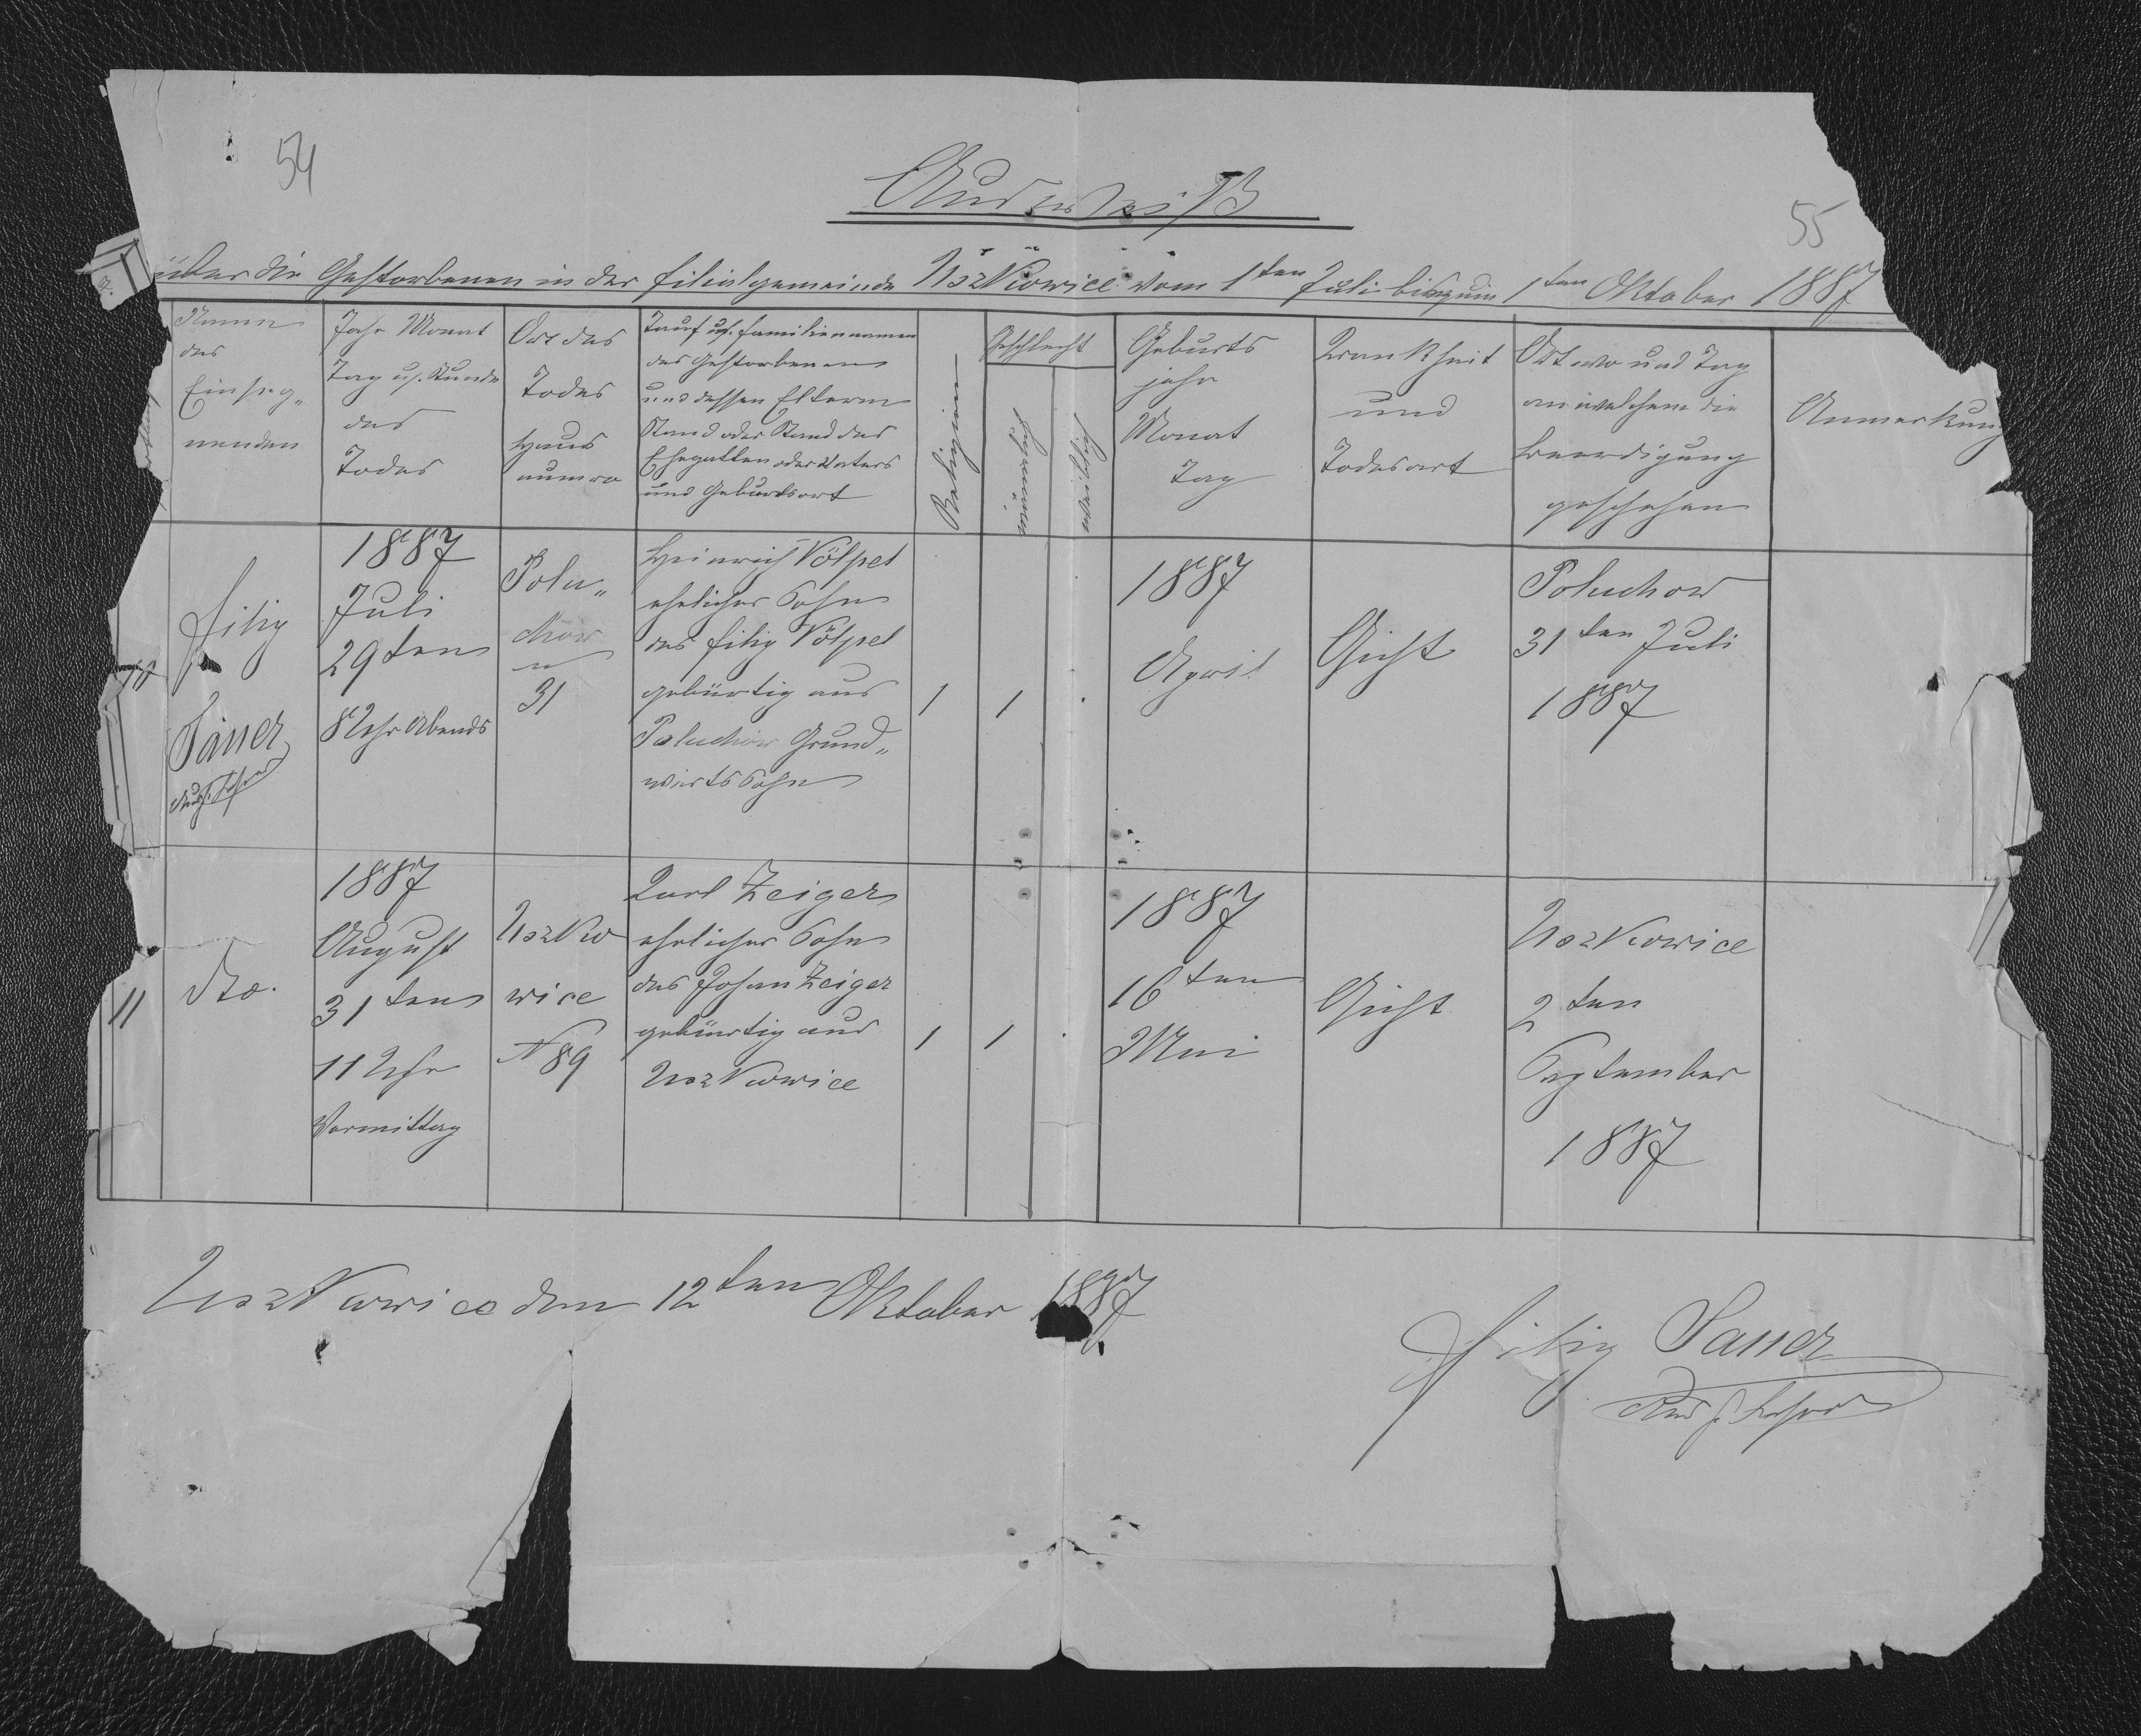 54
Ausweiß
55
über die Gestorbenen in der filialgemeinde Uszkowice vom 1ten Juli bis zum 1ten Oktober 1887
Namen
des
Einseg„
nenden
Jahr Monat
Tag u. Stunde
des
Todes
Ort des
Todes
Haus
numro
Tauf u. familiennamen
des Gestorbenen
und dessen Eltern
Stand oder Stand des
Ehegatten oder Vaters
und Geburtsort
Religion
Geschlecht
männlich
weiblich
Geburts
jahr
Monat
Tag
Krankheit
und
Todesart
Ort wo und Tag
an welchem die
Beerdigung
geschehen
Anmerkung
10
filip
Sauer
1887
Juli
29ten
8 Uhr Abends
Polu„
chow
31
Heinrich Völpel
ehelicher Sohn
des filip Völpel
gebürtig aus
Poluchow Grund„
wirts Sohn
1
1
1887
April
Gicht
Poluchow
31ten Juli
1887
11
dto.
1887
August
31ten
11 Uhr
Vormittag
Uszko
wice
N 89
Karl Zeiger
ehelicher Sohn
des Johan Zeiger
gebürtig aus
Uszkowice
1
1
1887
16ten
Mai
Gicht
Uszkowice
2ten
September
1887
Uszkowice den 12ten Oktober 1887
filip Sauer